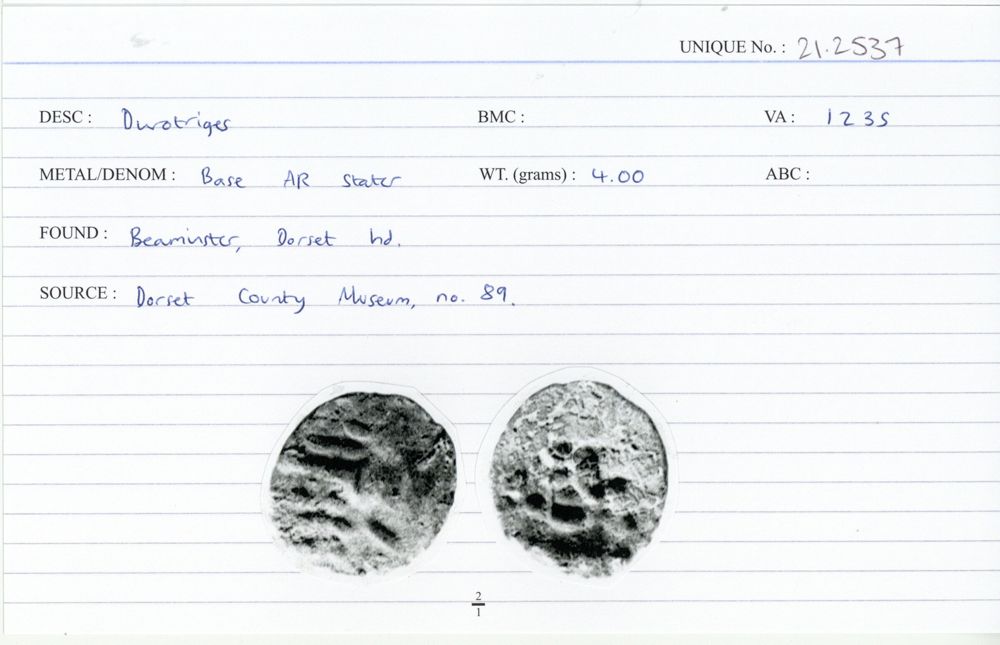 UNIQUE No. : 21.2537
DESC : Durotriges BMC : VA : 1235
METAL/DENOM : Base AR stater WT. (grams) : 4.00 ABC :
FOUND : Beaminster, Dorset hd.
SOURCE : Dorset County Museum, no. 89.
2
1